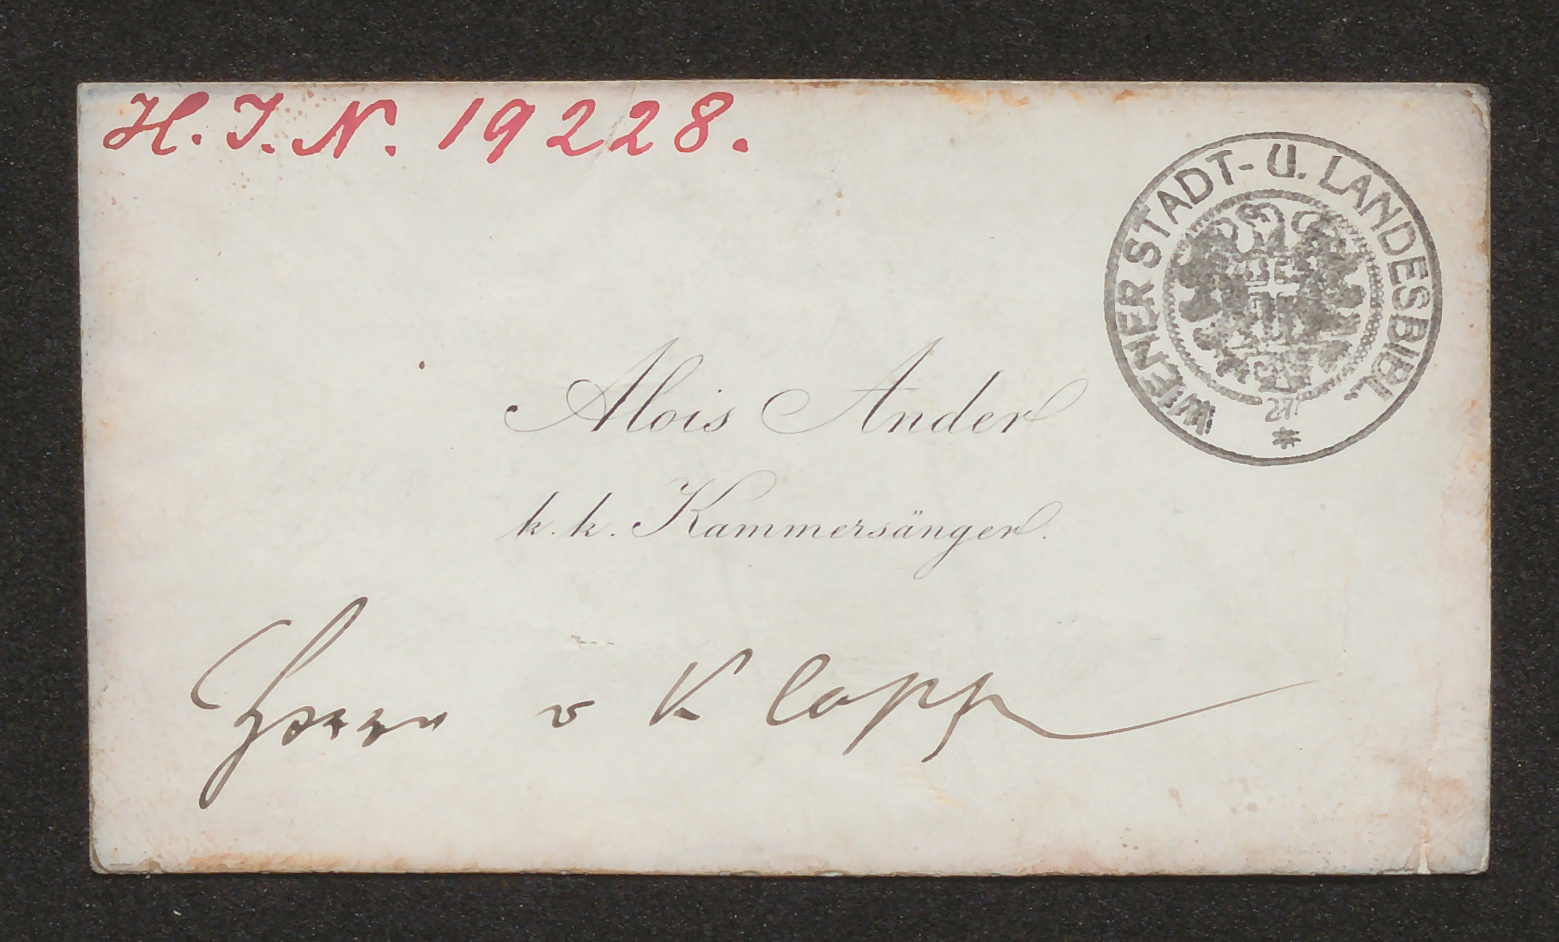 H. I. N. 19228.
WIENER STADT- U. LANDESBIBL.
27
Alois Ander
k. k. Kammersänger.
Herrn v Klapp